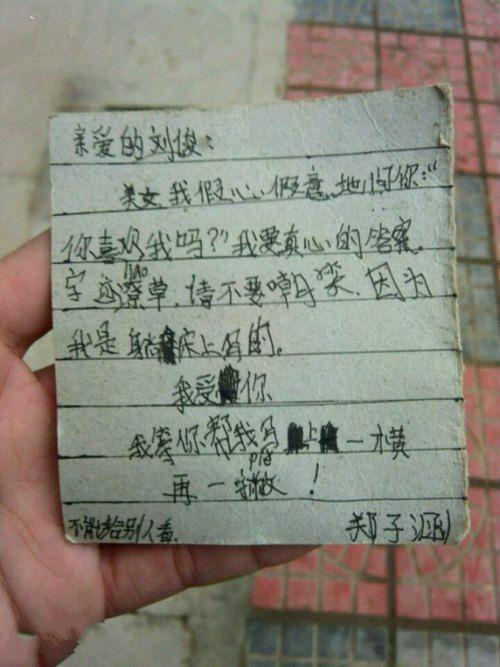 亲爱的刘俊：
美女我假心、假意地问你："
你喜欢我吗？"我要真心的答案。
liao
字迹潦草，请不要嘲笑，因为
我是躺床上写的。
我受你
我等你帮我写上一横
pie
再一撇！
不能给别人看。
郑子涵